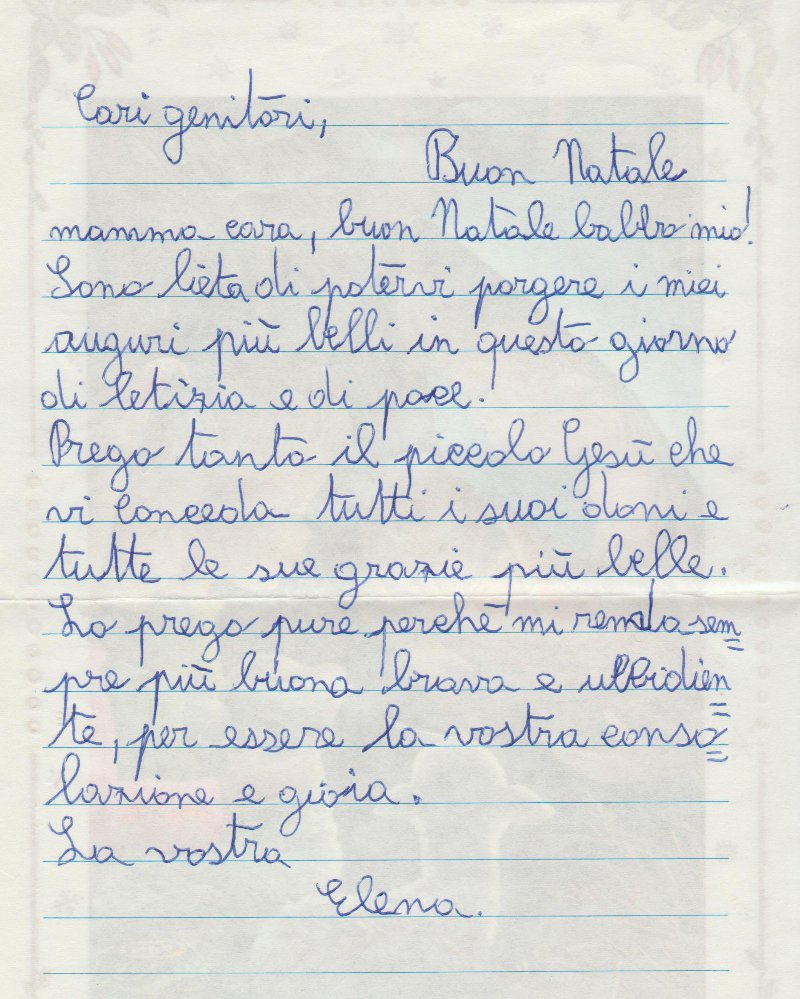 Cari genitori,
Buon Natale
mamma cara, buon Natale babbo mio!
Sono lieta di potervi porgere i miei
auguri più belli in questo giorno
di letizia e di pace.
Prego tanto il piccolo Gesù che
vi conceda tutti i suoi doni e
tutte le sue grazie più belle.
Lo prego pure perchè mi renda sem=
pre più buona brava e ubbidien=
te, per essere la vostra conso=
lazione e gioia.
La vostra
Elena.